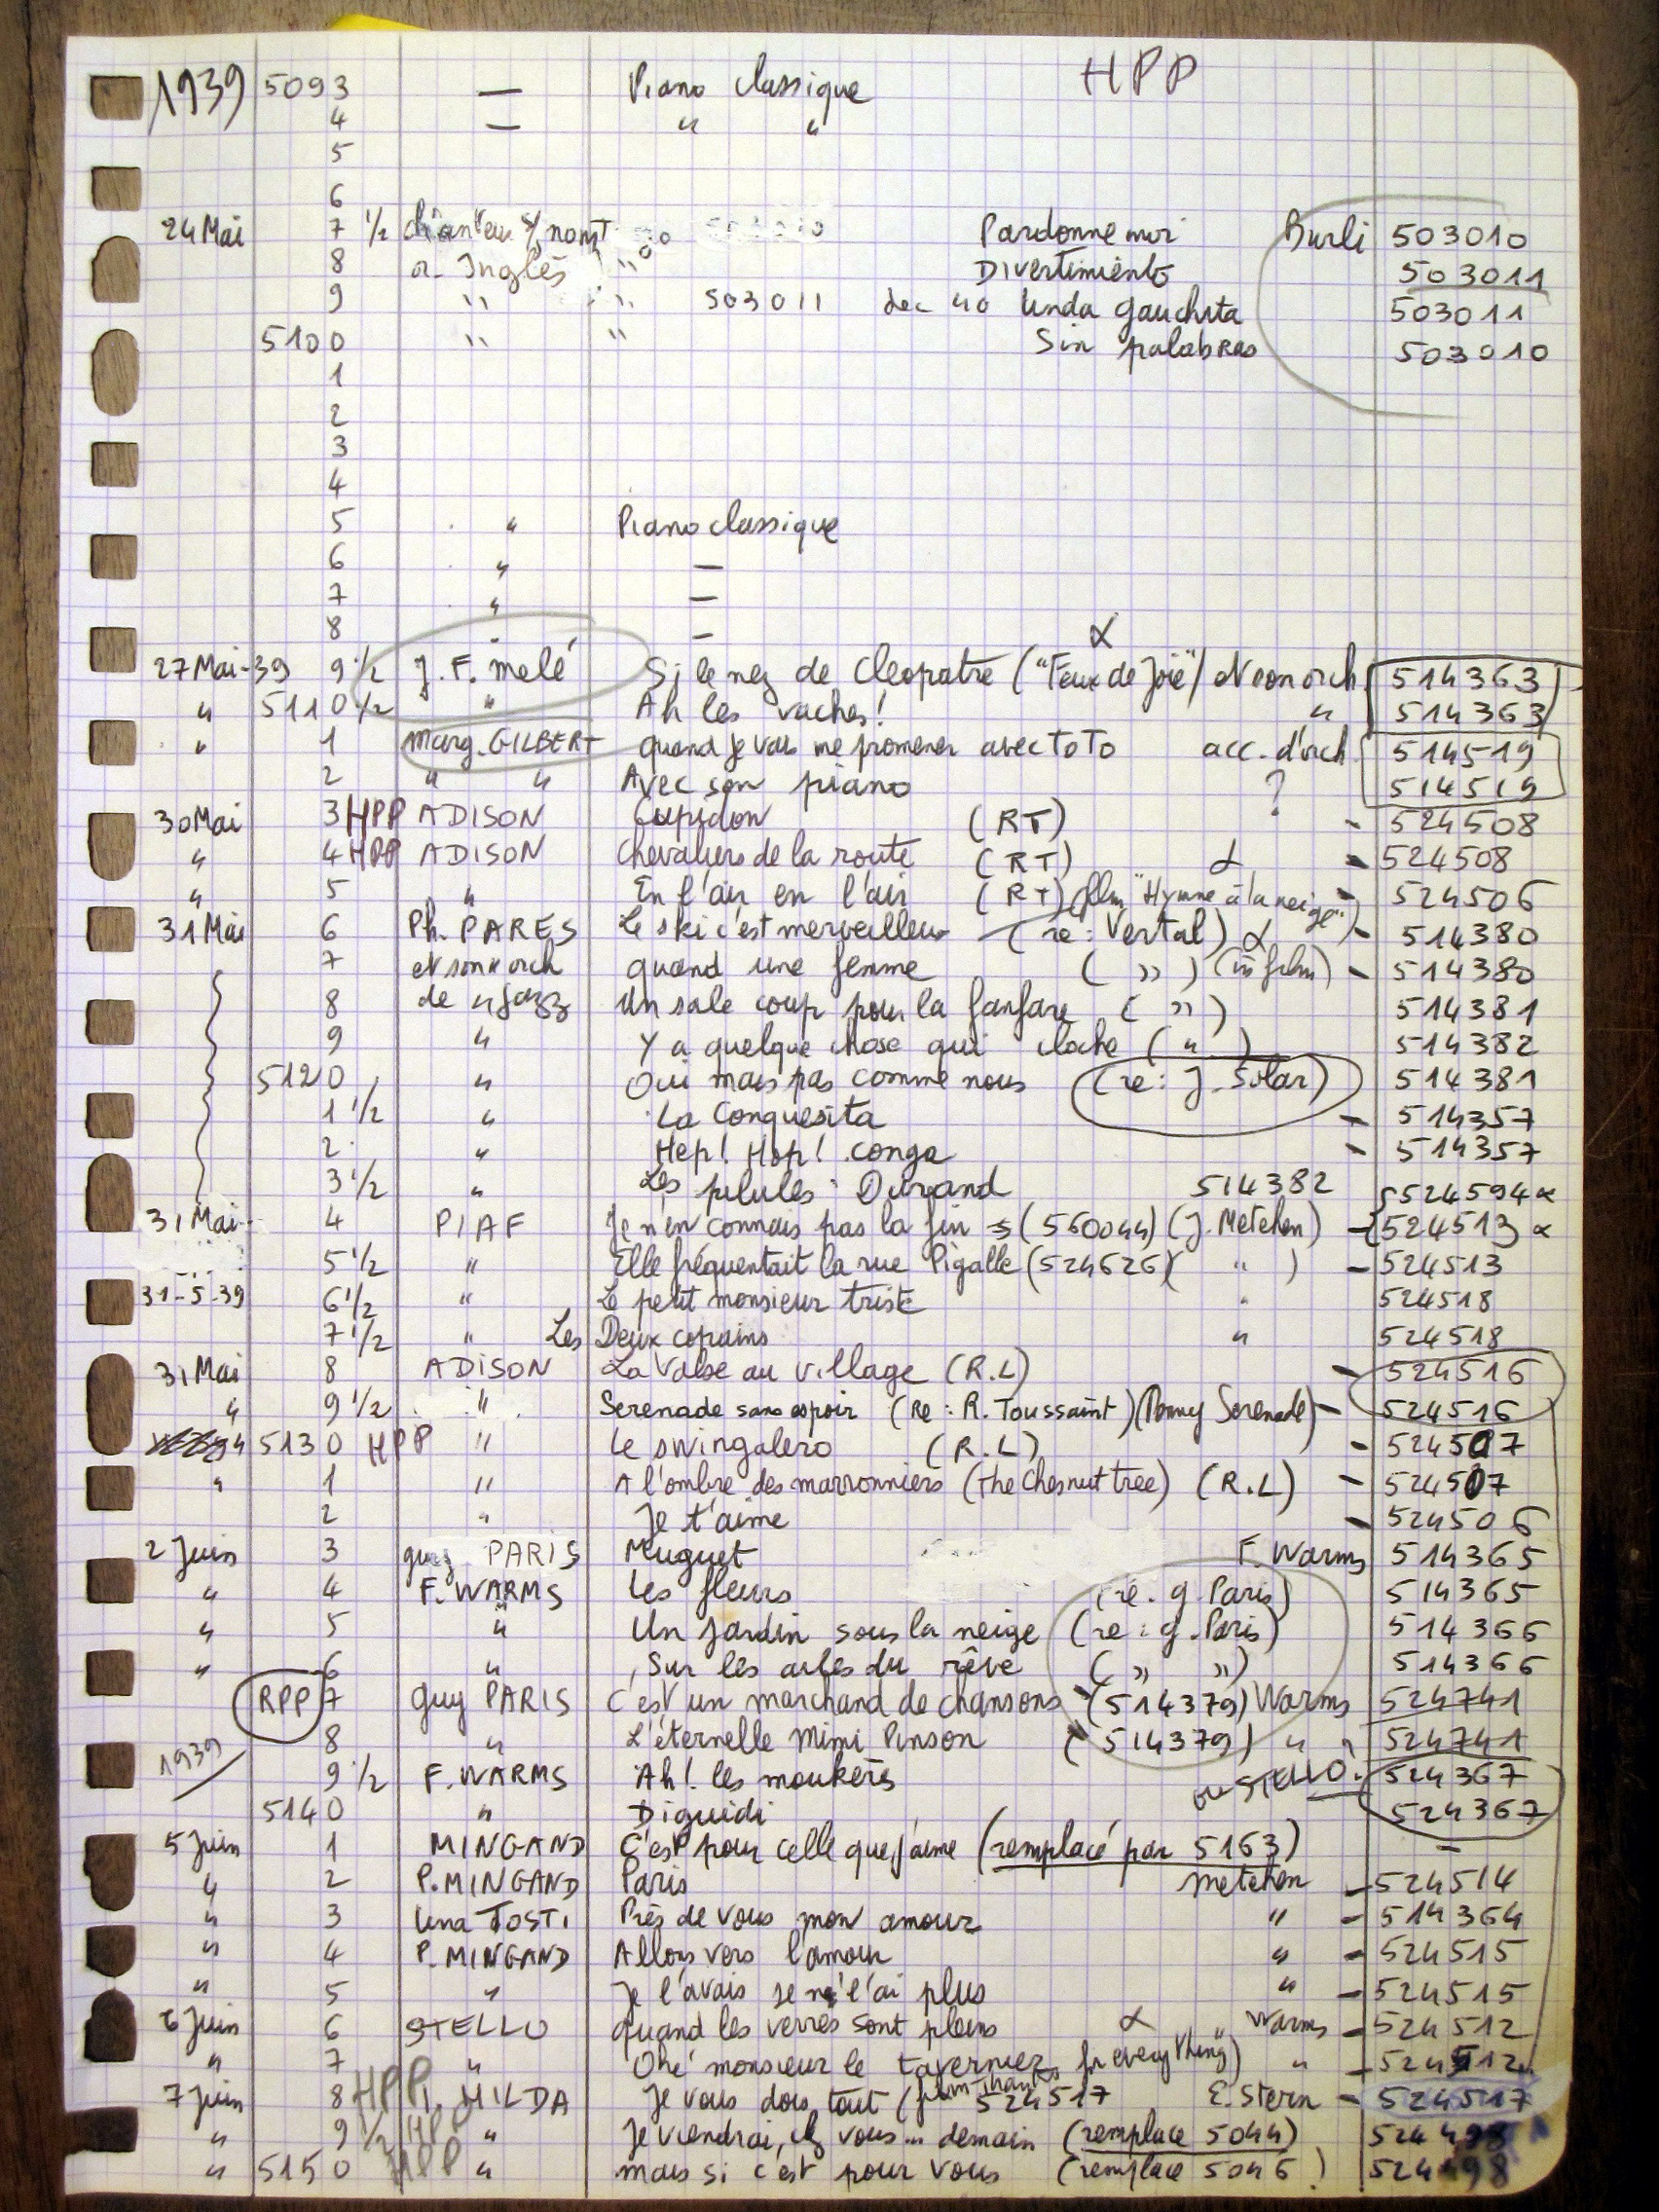 HPP
1939 5093 — Piano classique
4 — " "
5
6
24 Mai 7 1/2 Pardonne moi Burli 503010
8 or. Inglès " Divertimiento 503011
9 " " 503011 dec 40 linda gauchita 503011
5100 " " Sin palabras 503010
1
2
3
4
5 " Piano classique
6 " —
7 " —
8 - —
α
27 Mai-39 9 1/2 J. F. Melé Si le nez de Cleopatre ("Feux de Joie") et son orch 514363
" 5110 1/2 " Ah les vaches! " 514363
" 1 Marg. GILBERT quand je vais me promener avec ToTo acc. d'orch 514519
2 " " Avec son piano ? 514519
30 Mai 3 HPP ADISON Cupidon (RT) - 524508
" 4 HPP ADISON Chevaliers de la route (RT) α - 524508
" 5 " En l'air en l'air (RT) (film "Hymne à la neige") - 524506
31 Mai 6 Ph. PARES Le ski c'est merveilleux (re: Vertal) α - 514380
7 et son orch quand une femme ( " ) (in film) - 514380
8 de jazz Un sale coup pour la fanfare ( " ) 514381
9 " Y a quelque chose qui cloche ( " ) 514382
5120 " Oui mais pas comme nous (re: J. Solar) 514381
1 1/2 " La Conguesita - 514357
2 " Hep! Hop! conga - 514357
3 1/2 " Les pilules Durand 514382 524594 α
31 Mai 4 PIAF Je n'en connais pas la fin (560044) (J. Metehen) - 524513 α
5 1/2 " Elle fréquentait la rue Pigalle (524626) ( " ) - 524513
31-5-39 6 1/2 " Le petit monsieur triste " 524518
7 1/2 " Les Deux copains " 524518
31 Mai 8 ADISON La Valse au village (R.L) - 524516
" 9 1/2 " Serenade sans espoir (Re: R. Toussaint) (Penny Serenade) - 524516
" 5130 HPP " Le swingalero (R.L) - 524507
" 1 " A l'ombre des marronniers (the chesnut tree) (R.L) - 524507
2 " Je t'aime - 524506
2 Juin 3 guy PARIS Muguet F. Warms 514365
" 4 F. WARMS Les fleurs (re. g. Paris) 514365
" 5 " Un jardin sous la neige (re: g. Paris) 514366
" 6 " Sur les ailes du rêve ( " " ) 514366
RPP 7 guy PARIS C'est un marchand de chansons (514379) Warms 524741
8 " L'éternelle Mimi Pinson (514379) " 524741
1939 9 1/2 F. WARMS Ah! les moukères ou STELLO? 524367
5140 " Diguidi 524367
5 Juin 1 MINGAND C'est pour celle que j'aime (remplacé par 5163) —
" 2 P. MINGAND Paris Metehen - 524514
" 3 Lina TOSTI Près de vous mon amour " - 514364
" 4 P. MINGAND Allons vers l'amour " - 524515
" 5 " Je l'avais je ne l'ai plus " - 524515
6 Juin 6 STELLO quand les verres sont pleins α Warms - 524512
" 7 " Ohé monsieur le tavernier " - 524512
7 Juin 8 HPP HILDA Je vous dois tout (film Thanks for everything) 524517 E. Stern - 524517
" 9 1/2 HPP " Je viendrai chez vous... demain (remplace 5044) 524498
" 5150 HPP " Mais si c'est pour vous (remplace 5046) 524498